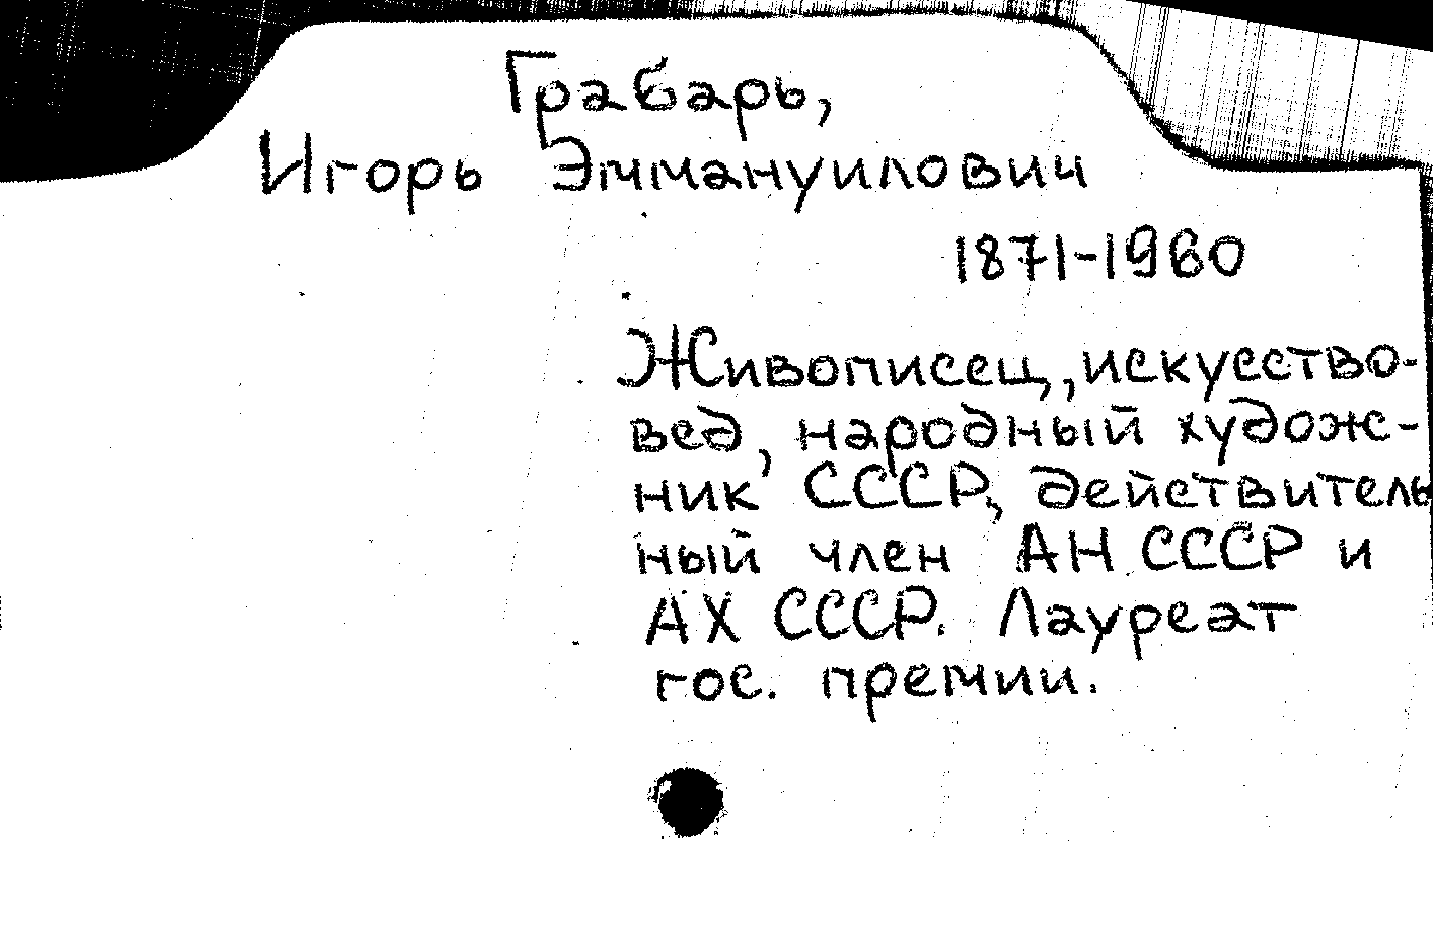 Грабарь,
Игорь Эммануилович
1871-1960
Живописец, искусство-
вед, народный худож-
ник СССР, действитель
ный член АН СССР и
АХ СССР. Лауреат
гос. премии.